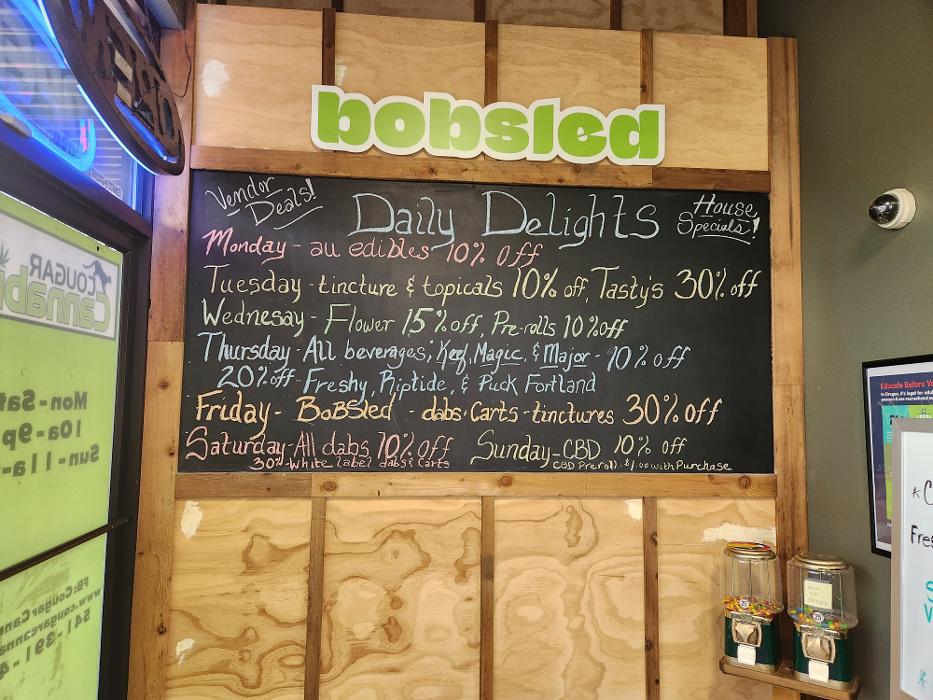 bobsled
Vendor
Deals!
Daily Delights
House
Specials!
Monday - all edibles 10% off
Tuesday - tincture & topicals 10% off, Tasty's 30% off
Wednesay - Flower 15% off, Pre-rolls 10% off
Thursday - All beverages; Keef, Magic, & Major - 10% off
20% off - Freshy, Riptide, & Puck Fortland
Friday - BoBSled - dabs · Carts - tinctures 30% off
Saturday - All dabs 10% off
30% - White label dabs & Carts
Sunday - CBD 10% off
CBD Preroll $1.00 with Purchase
COUGAR
Cannabi
Mon - Sat
10a - 9p
Sun - 11a -
FB: Cougar Cann
www.cougarcanna
541 - 391 - 4
Educate Before Yo
25
25